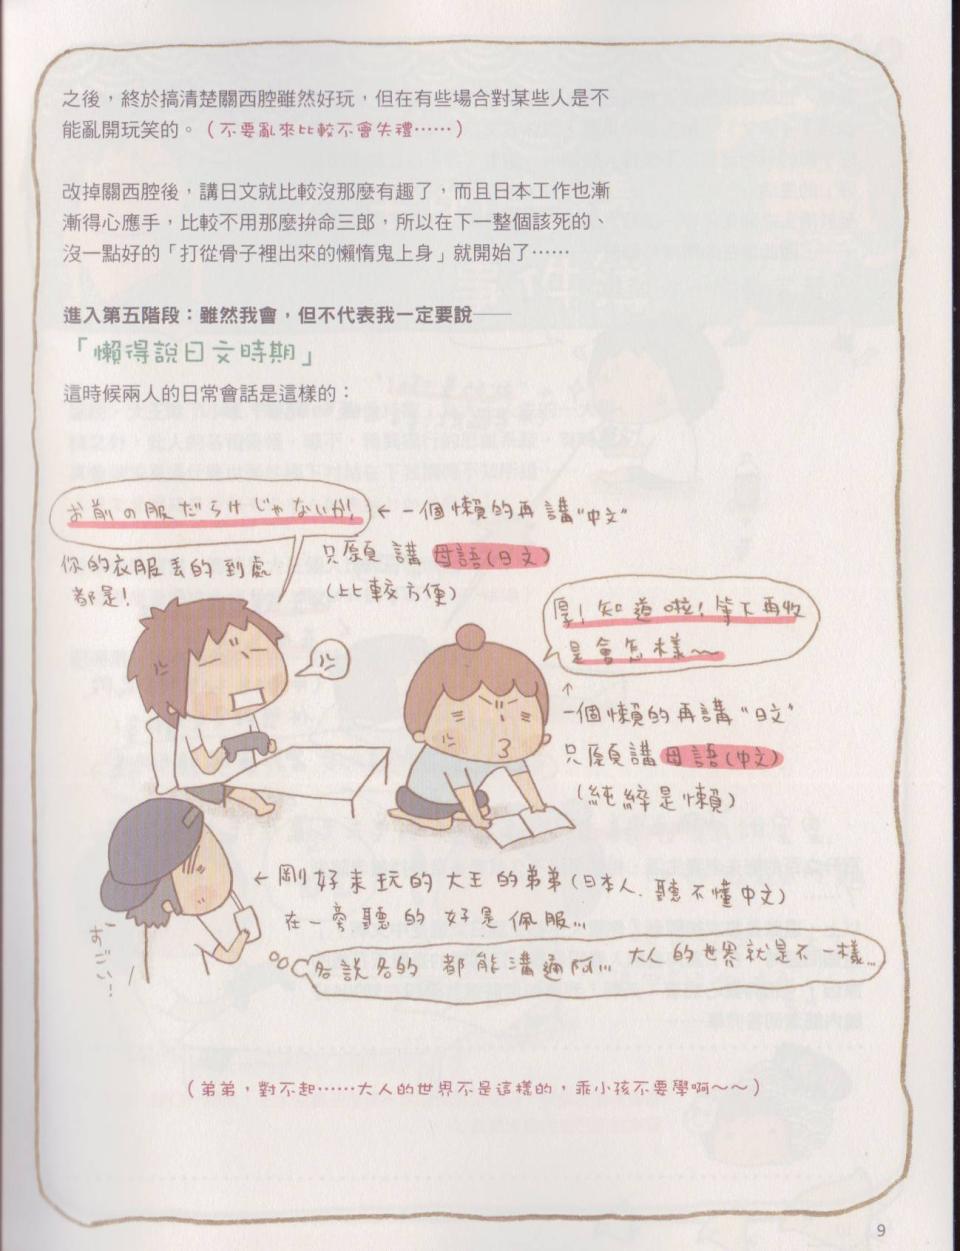 之後，終於搞清楚關西腔雖然好玩，但在有些場合對某些人是不
能亂開玩笑的。（不要亂來比較不會失禮……）
改掉關西腔後，講日文就比較沒那麼有趣了，而且日本工作也漸
漸得心應手，比較不用那麼拚命三郎，所以在下一整個該死的、
沒一點好的「打從骨子裡出來的懶惰鬼上身」就開始了……
進入第五階段：雖然我會，但不代表我一定要說——
「懶得說日文時期」
這時候兩人的日常會話是這樣的：
お前の服だらけじゃないか!
←一個懶的再講"中文"
只願講母語(日文)
(比較方便)
你的衣服丟的到處
都是!
厚!知道啦!等下再收
是會怎樣~~
↑
一個懶的再講"日文"
只願講母語(中文)
(純粹是懶)
←剛好來玩的大王的弟弟(日本人、聽不懂中文)
在一旁聽的 好是佩服...
すごい!
各說各的 都能溝通阿... 大人的世界就是不一樣...
（弟弟，對不起……大人的世界不是這樣的，乖小孩不要學啊～～）
9